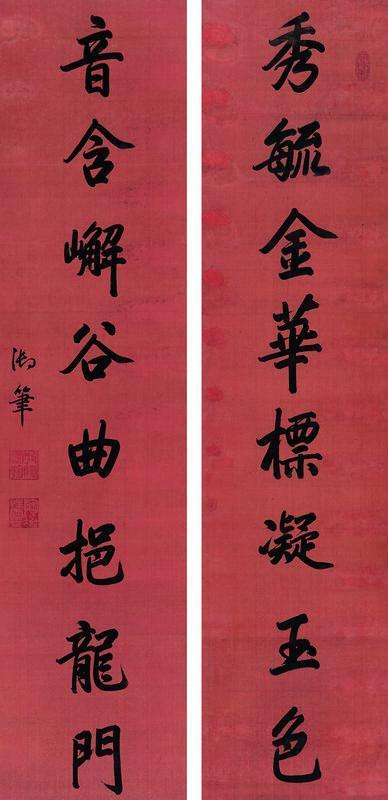 秀毓金華標凝玉色
音含嶰谷曲挹龍門
御筆